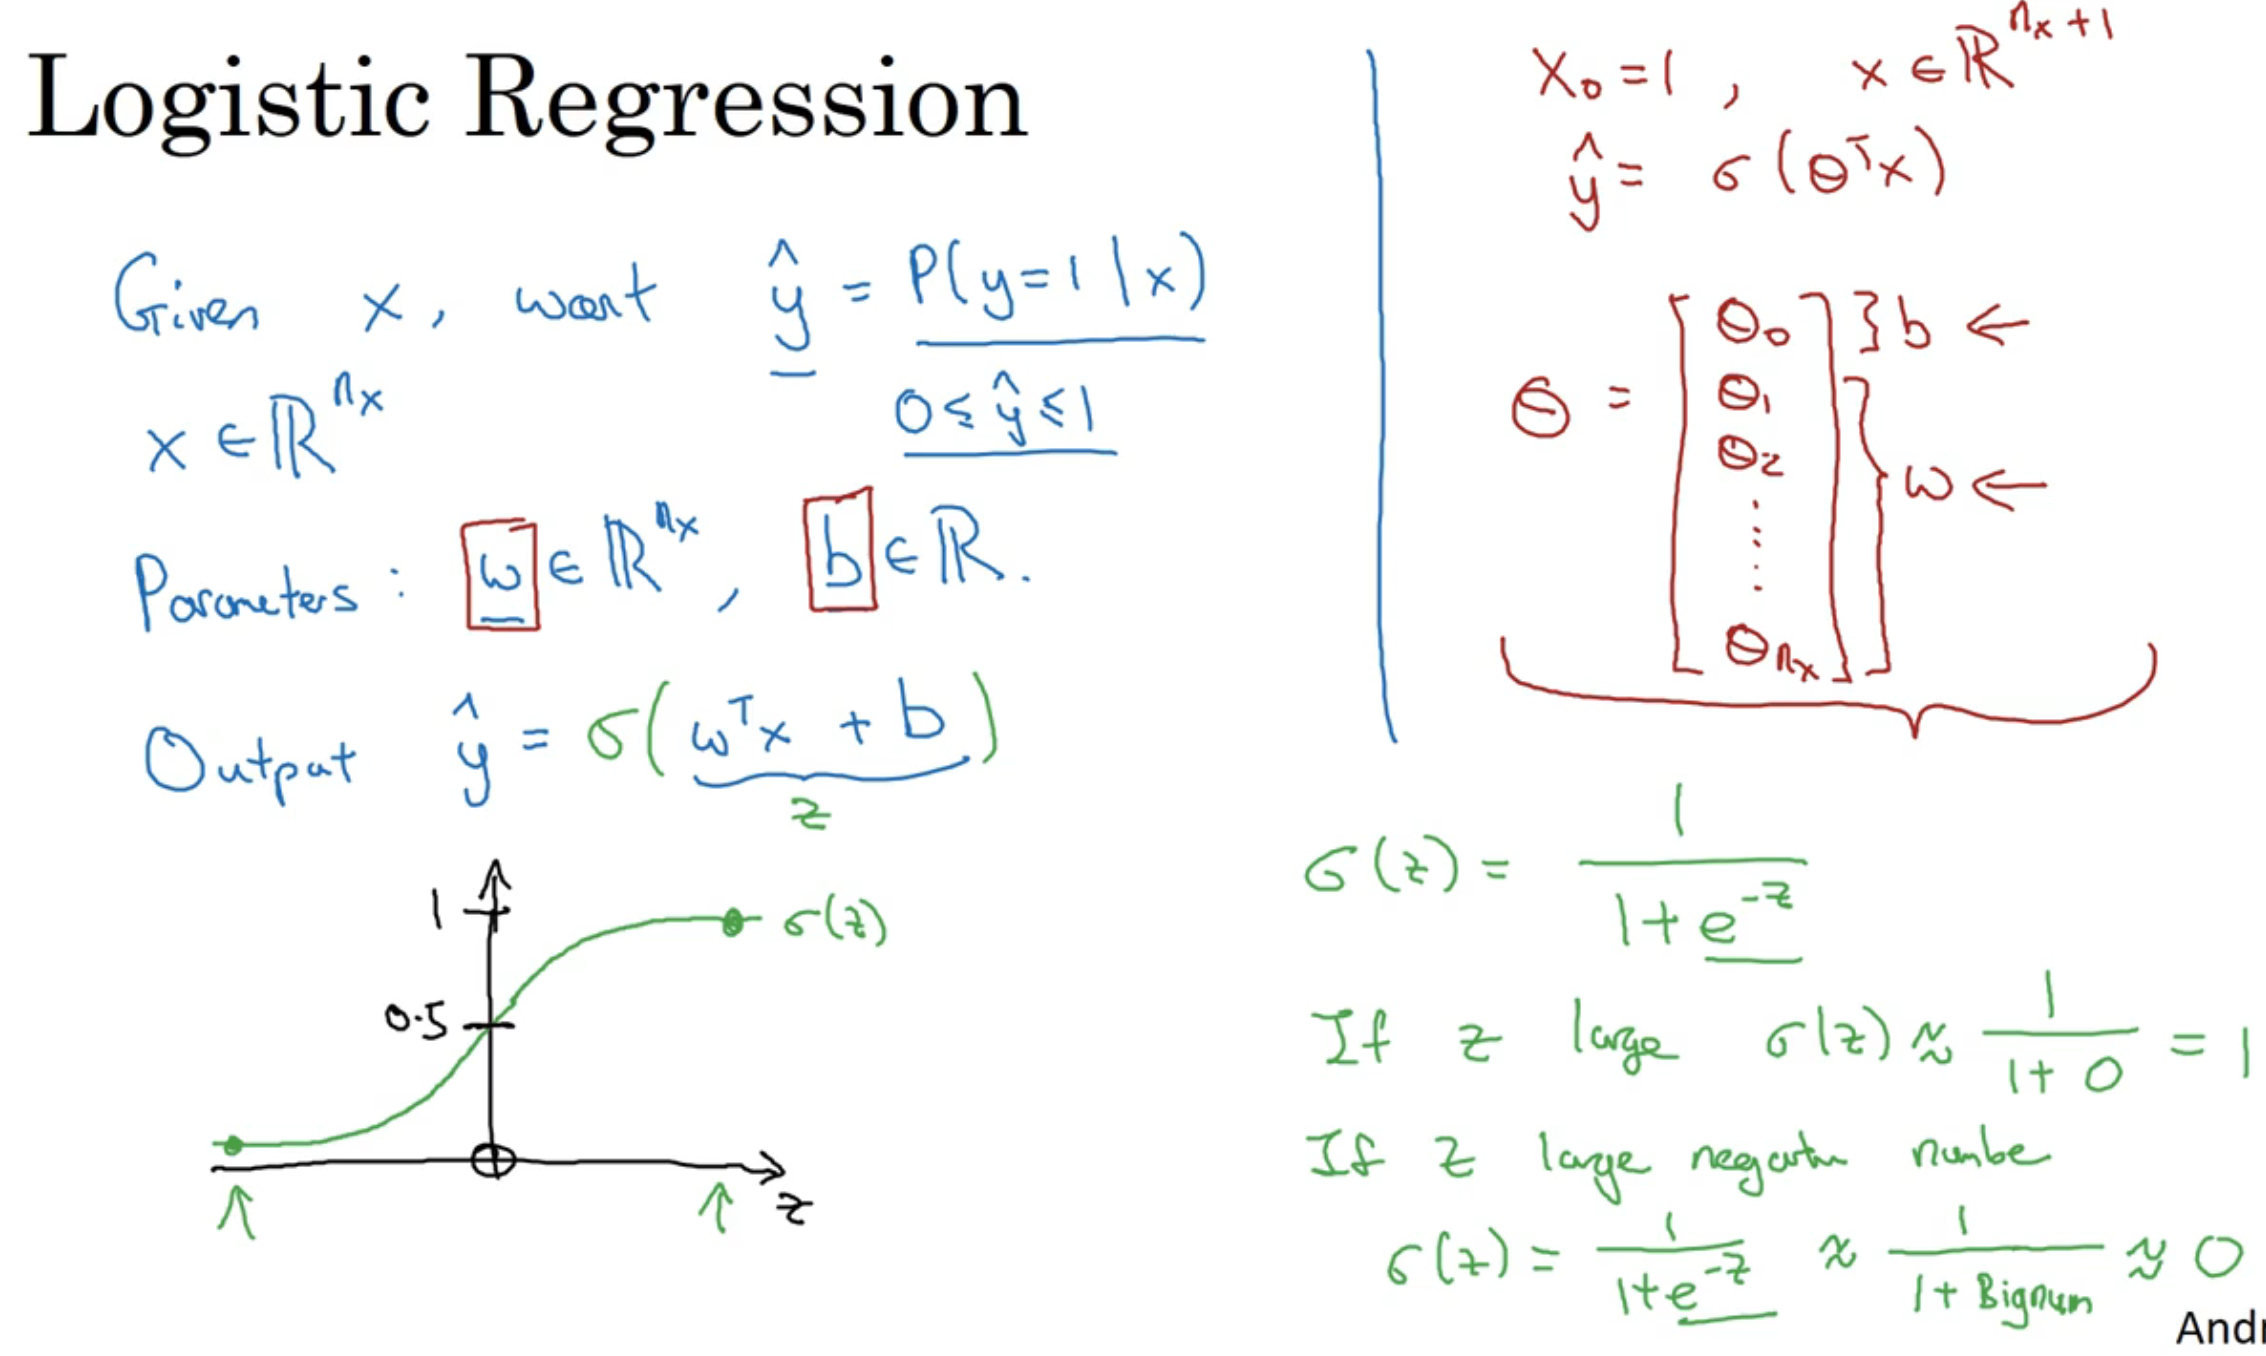 Logistic Regression
Given x, want ŷ = P(y=1|x)
0 ≤ ŷ ≤ 1
x ∈ ℝ^{n_x}
Parameters: w ∈ ℝ^{n_x}, b ∈ ℝ.
Output ŷ = σ(wᵀx + b)
z
1
σ(z)
0.5
z
x₀ = 1, x ∈ ℝ^{n_x+1}
ŷ = σ(θᵀx)
θ = [θ₀ θ₁ θ₂ ⋮ θ_{n_x}] } b ← } w ←
σ(z) = 1/(1+e^{-z})
If z large σ(z) ≈ 1/(1+0) = 1
If z large negative number
σ(z) = 1/(1+e^{-z}) ≈ 1/(1+Bignum) ≈ 0
Andr